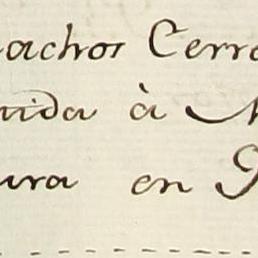 achos Cerr
uida à
ura en